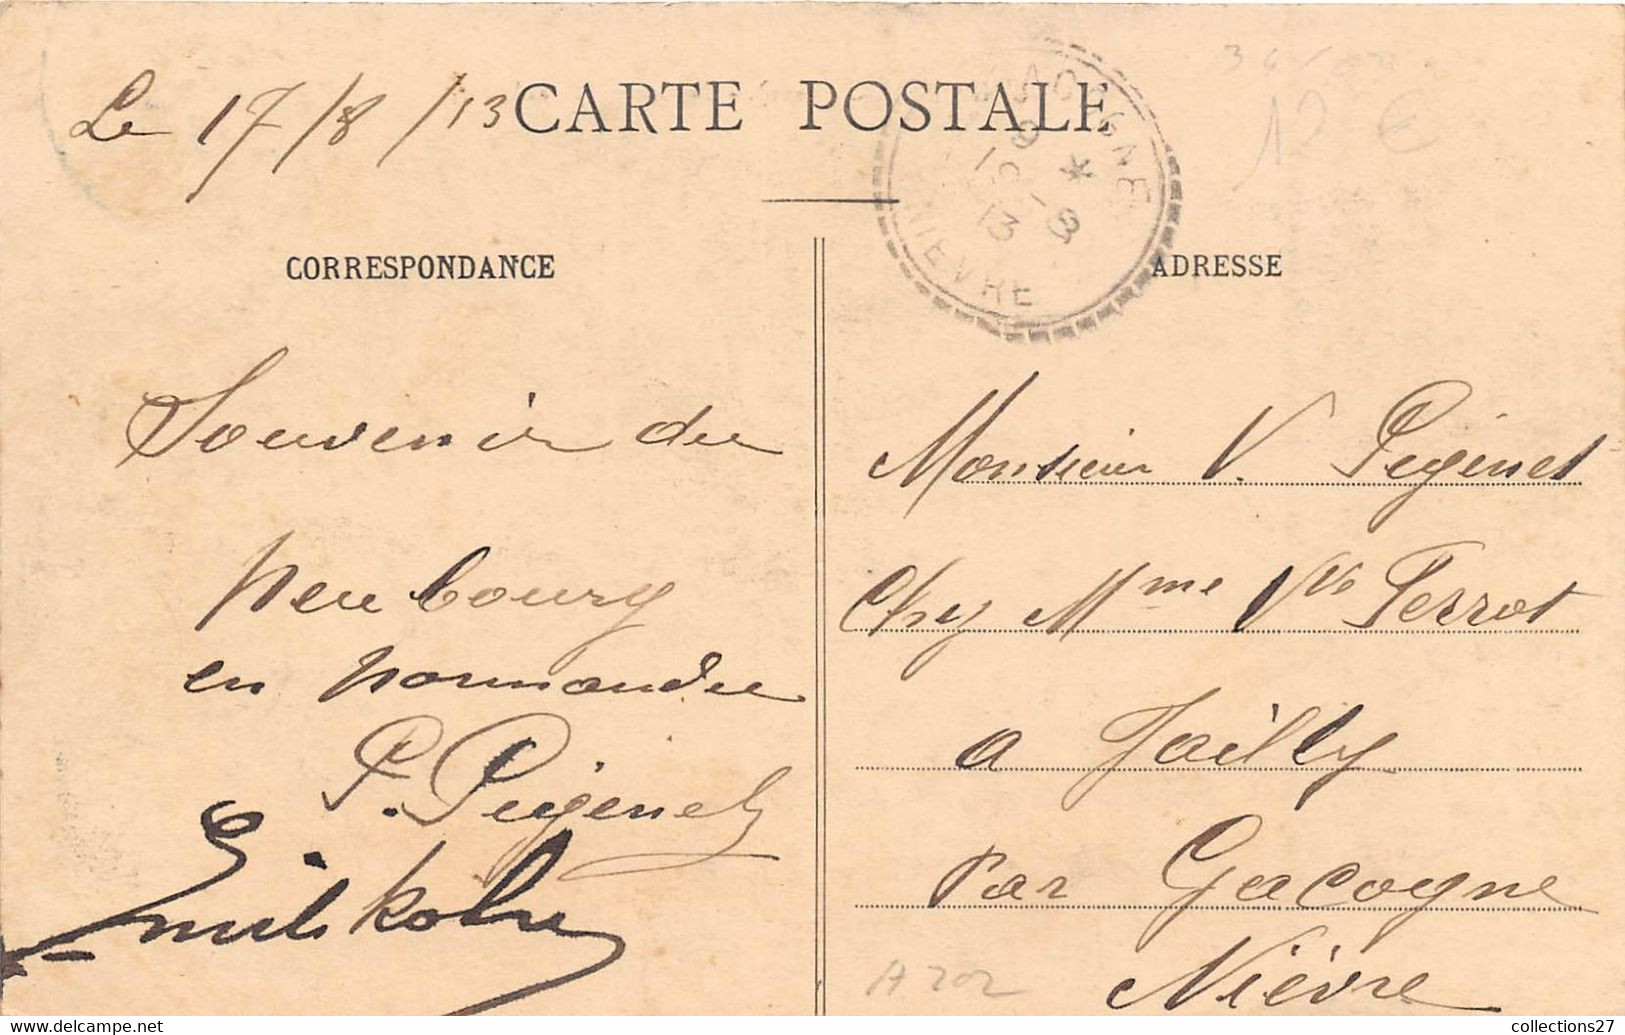 Le 17/8/13
CARTE POSTALE
GACOGNE
9 *
19 -8
13
NIEVRE
12 €
CORRESPONDANCE
Souvenir du
Neubourg
en Normandie
P. Pigenet
Emile Kohn
ADRESSE
Monsieur V. Pigenet
Chez Mme Vve Perrot
a Jailly
Par Gacogne
Nièvre
A202
collections27